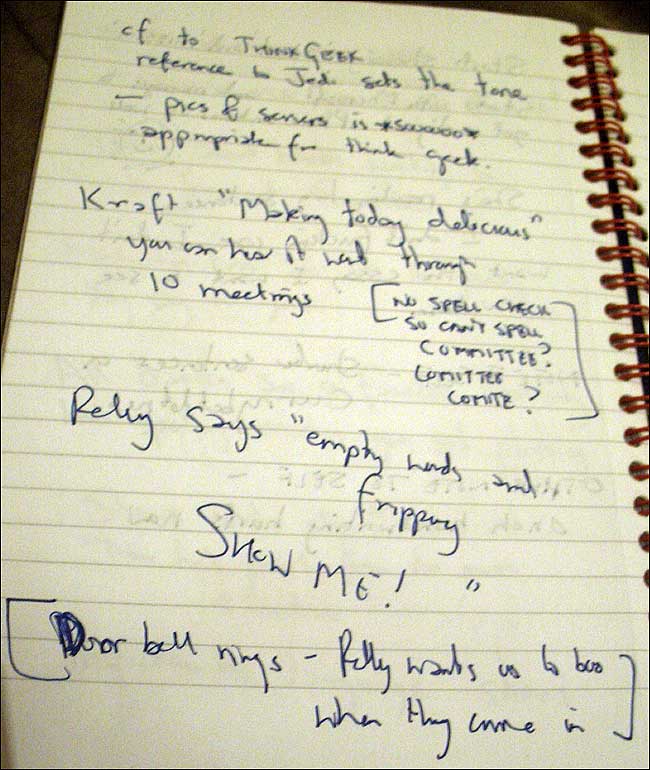 cf to THINKGEEK
reference to Jedi sets the tone
— pics of servers is *swoooo*
appropriate for think geek.
Kraft "Making today delicious"
you can hear it went through
10 meetings
[NO SPELL CHECK
SO CAN'T SPELL
COMMITTEE?
COMITTEE
COMITE?]
Relly says "empty words and
frippery
SHOW ME! "
[Door bell rings - Relly wants us to boo
when they come in]